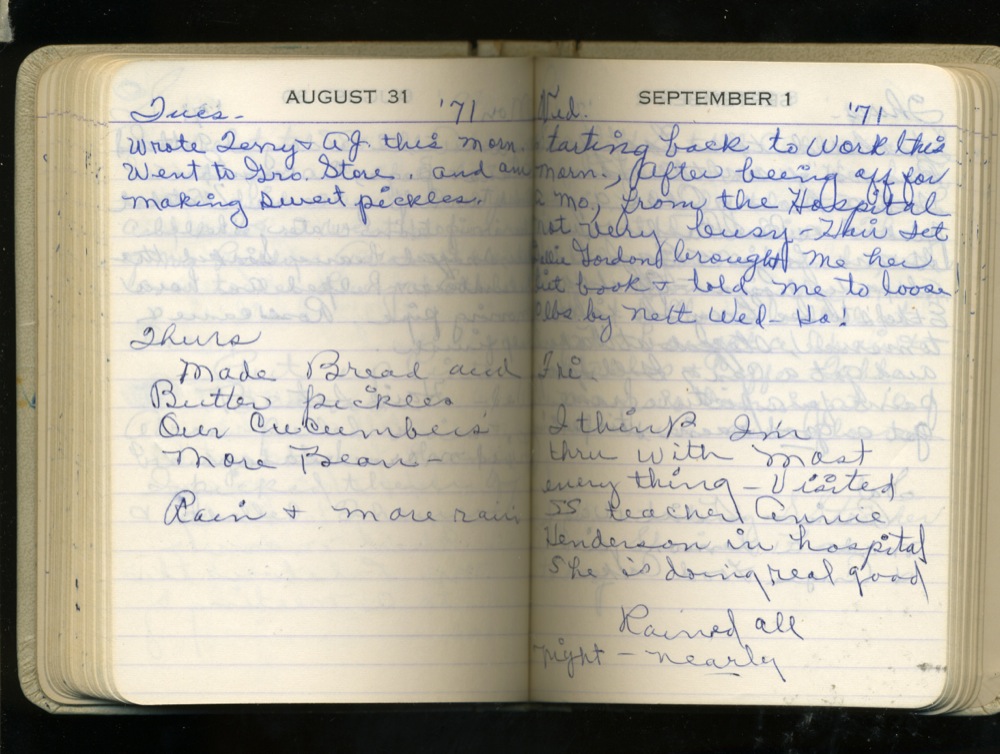 AUGUST 31
Tues. '71
Wrote Terry & A.J. this morn.
Went to Gro. Store. and am
making sweet pickles.
Thurs
Made Bread and
Butter pickles
Our Cucumbers
More Bean-
Rain & more rain
SEPTEMBER 1
Wed. '71
tarting back to work this
morn., After being off for
a mo, from the Hospital
not very busy - Their
Gordon brought me her
book & told me to loose
lbs by next Wed - Ha!
Fri.
I think I'm
thru with most
every thing - Visited
SS teacher Annie
Henderson in hospital
She is doing real good
Rained all
night - nearly